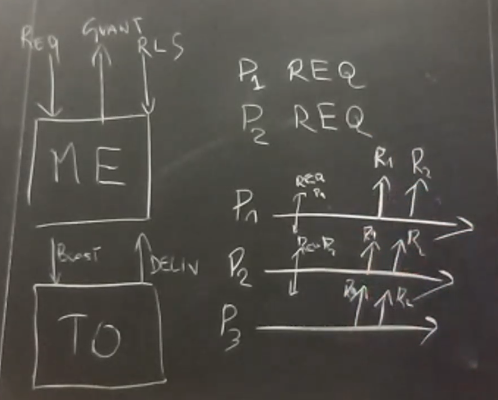 REQ GRANT RLS
ME
BCAST DELIV
TO
P1 REQ
P2 REQ
REQ P1 R1 R2
P1
REQ P2 R1 R2
P2
R1 R2
P3